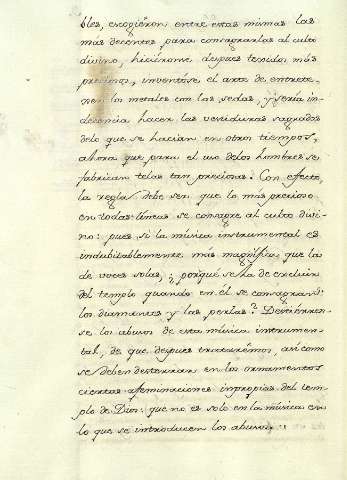 bles, escogiéron entre estas mismas las
más decentes para consagrarlas al culto
divino, hiciéronse despues texidos más
preciosos, inventóse el arte de entrete-
ner los metales con las sedas, y sería in-
decencia hacer las vestiduras sagradas
delo que se hacian en otros tiempos,
ahora que para el uso delos hombres se
fabrican telas tan preciosas. Con efecto,
la regla debe ser que lo más precioso
en todas líneas se consagre al culto divi-
no: pues si la música instrumental es
indubitablemente mas magnífica que la
de voces solas, ¿porqué se ha de excluir
del templo quando en él se consagran
los diamantes y las perlas? Destiérren-
se los abusos de esta música instrumen-
tal, de que despues tratarémos, así como
se deben desterrar en los ornamentos
ciertas afeminaciones impropias del tem-
plo de Dios: que no es solo en la música en
lo que se introducen los abusos.